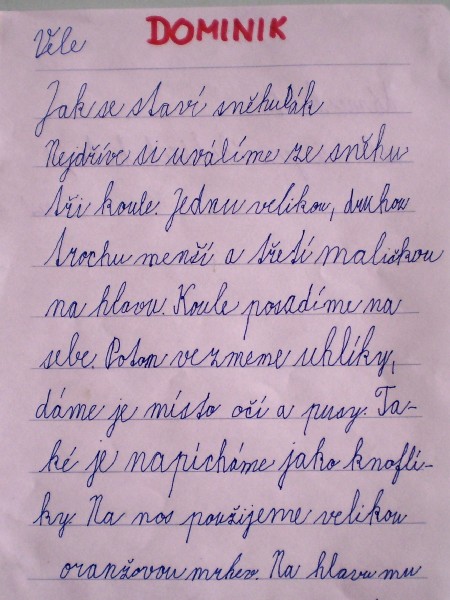 Vĕle DOMINIK
Jak se staví sněhulák
Nejdříve si uválíme ze sněhu
tři koule. Jednu velikou, druhou
trochu menší a třetí maličkou
na hlavu. Koule posadíme na
sebe. Potom vezmeme uhlíky,
dáme je místo očí a pusy. Ta-
ké je napícháme jako knoflí-
ky. Na nos použijeme velikou
oranžovou mrkev. Na hlavu mu